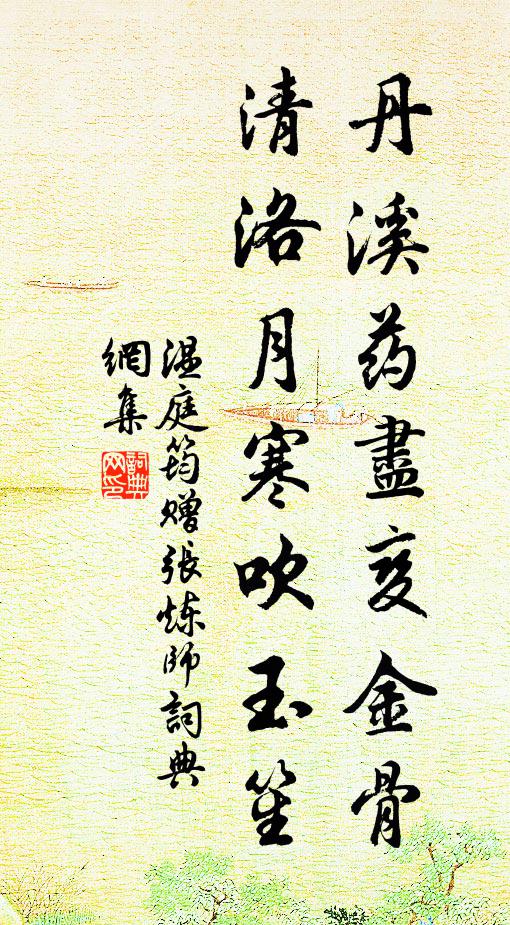 丹溪药盡变金骨
清洛月寒吹玉笙
温庭筠赠張炼师詞典
網集
詞典
网印